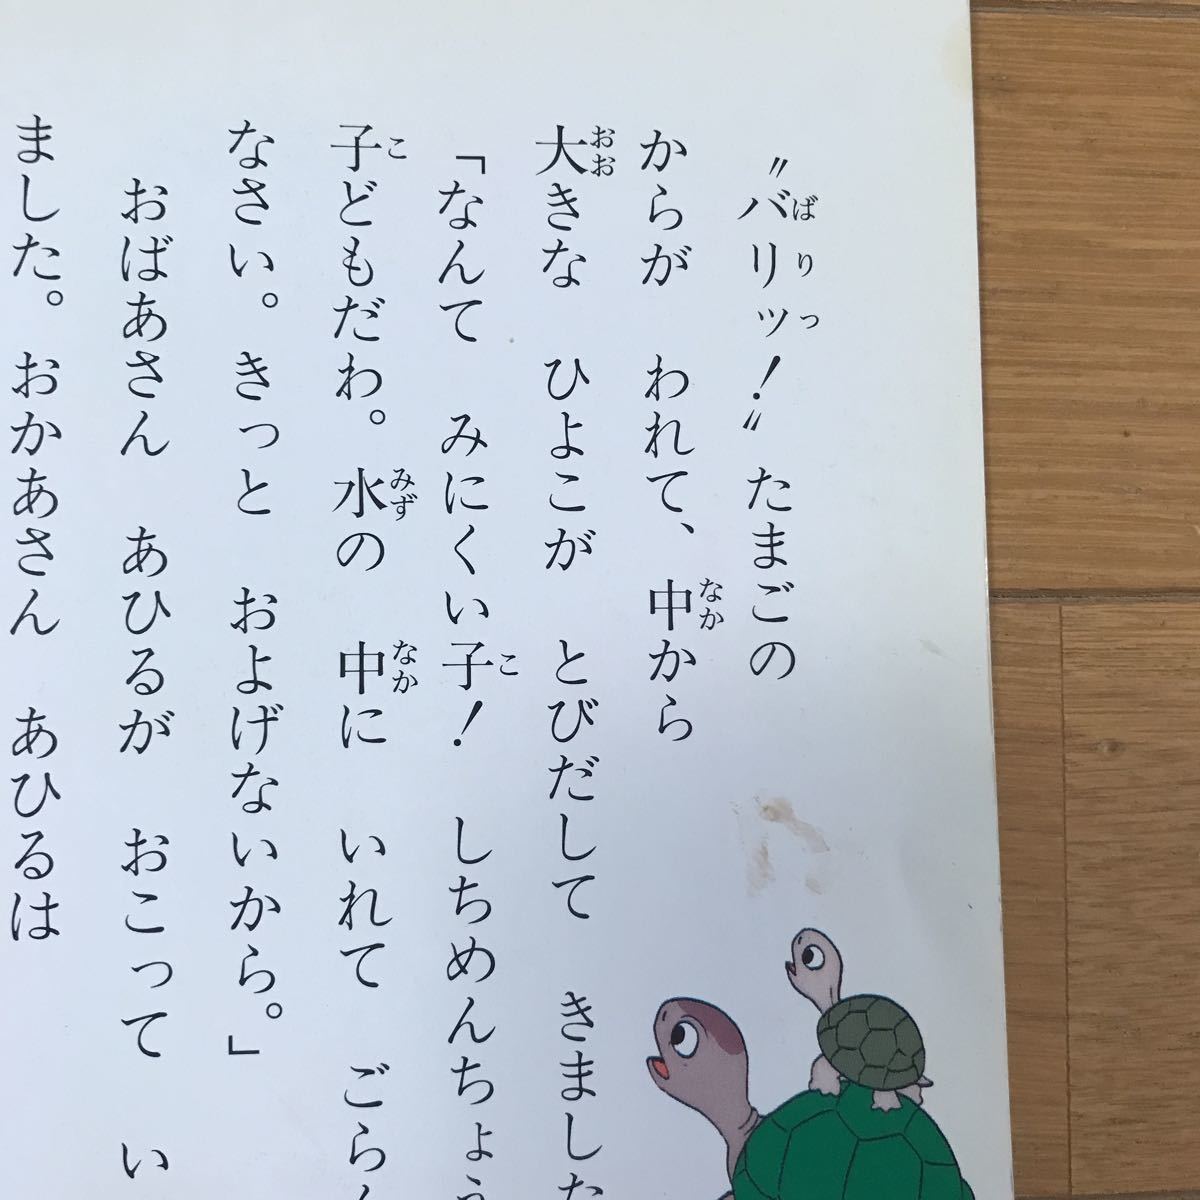 〝バリッ！〟たまごの
からが　われて、中から
大きな　ひよこが　とびだして　きました
「なんて　みにくい子！　しちめんちょう
子どもだわ。水の　中に　いれて　ごらん
なさい。きっと　およげないから。」
おばあさん　あひるが　おこって　い
ました。おかあさん　あひるは